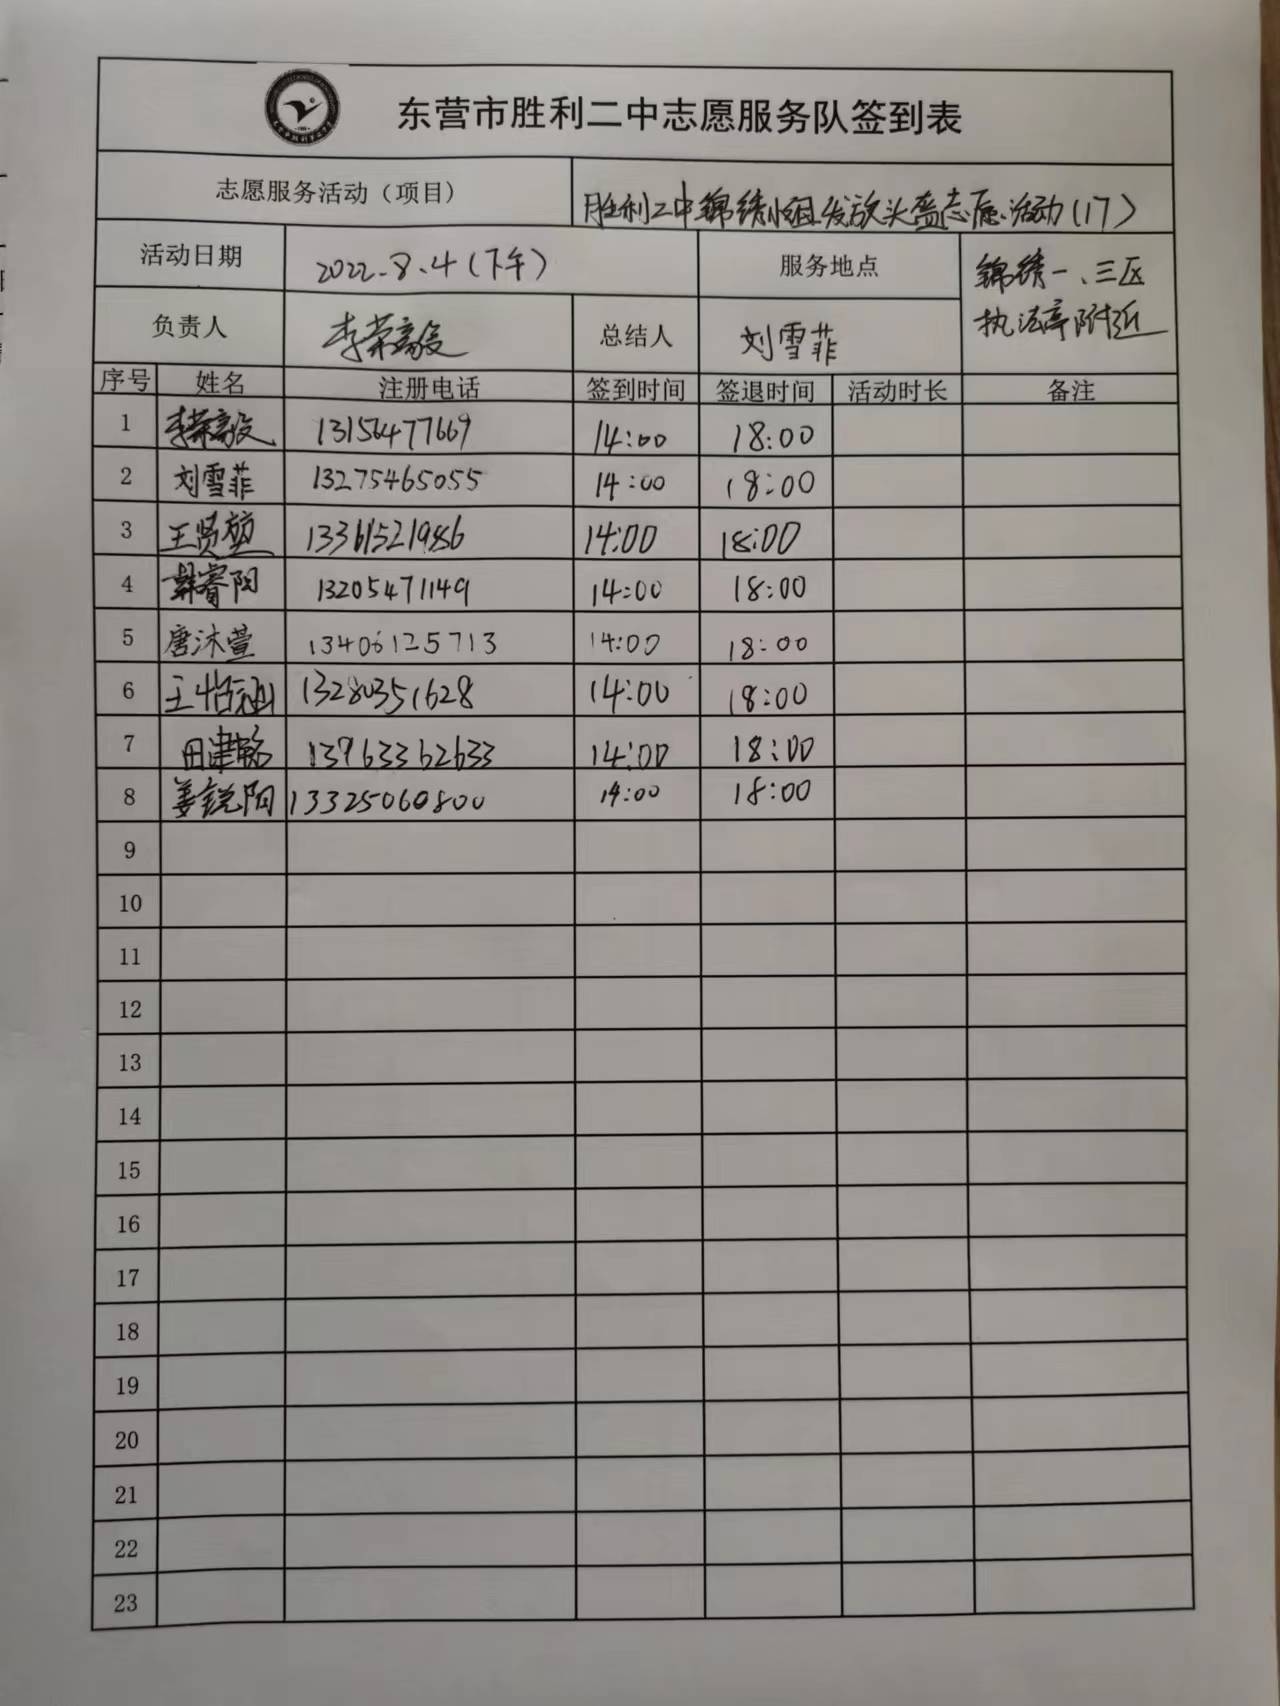 东营市胜利二中志愿服务队签到表
志愿服务活动（项目） 胜利二中锦绣小组发放头盔志愿活动(17)
活动日期 2022.8.4(下午) 服务地点 锦绣一、三区
执法亭附近
负责人 李荣毅 总结人 刘雪菲
序号 姓名 注册电话 签到时间 签退时间 活动时长 备注
1 李荣毅 13156477669 14:00 18:00
2 刘雪菲 13275465055 14:00 18:00
3 王贤 13361521986 14:00 18:00
4 韩睿阳 13205471149 14:00 18:00
5 唐沐萱 13406125713 14:00 18:00
6 王怡涵 13280351628 14:00 18:00
7 田津铭 13963362633 14:00 18:00
8 姜锐阳 13325060800 14:00 18:00
9
10
11
12
13
14
15
16
17
18
19
20
21
22
23